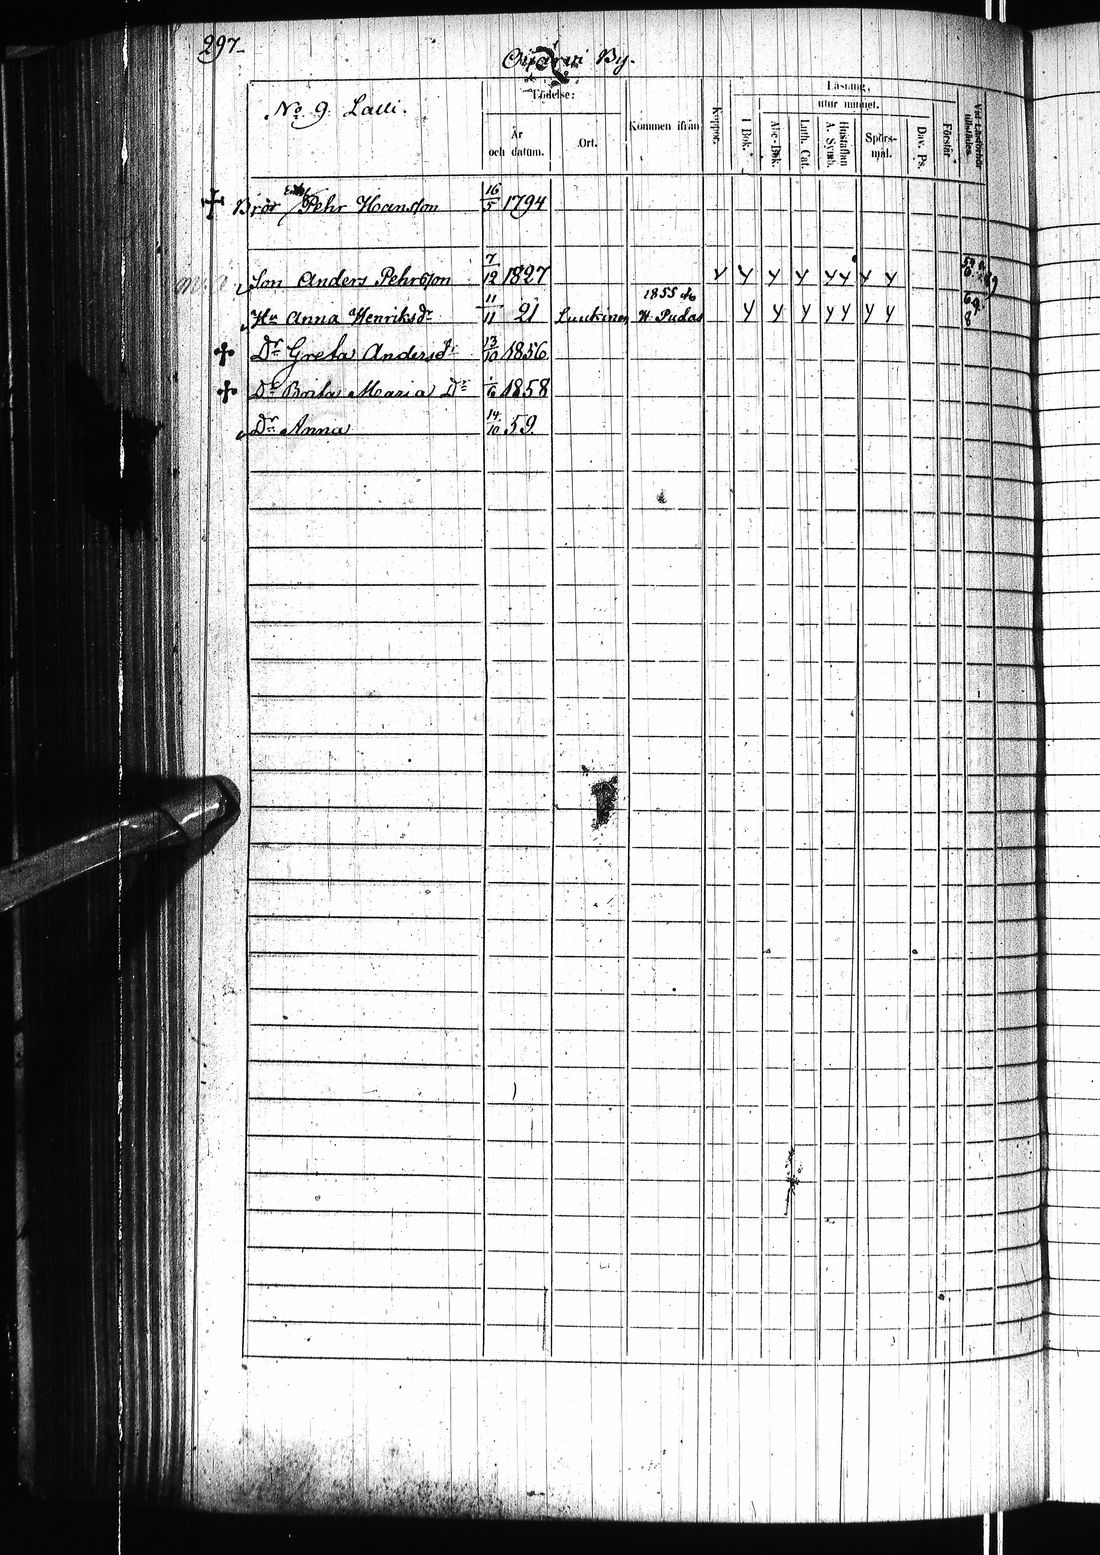 297
By.
No 9. Lalli.
Födelse:
År och datum.
Ort.
Kommen ifrån
Koppor.
Läsning,
utur minnet.
I Bok.
Abc-Bok.
Luth. Cat.
Hustaflan A. Symb.
Spörs-mål.
Dav. Ps.
Förstår
+ Bror Enkl. Pehr Hansson 16/5 1794
Son Anders Pehrsson 7/12 1827 y y y y y y y y
Hu Anna Henriksdr 11/11 21 Luukinen 1855 do N. Pudas y y y y y y y
+ Dr Greta Andersdr 13/10 1856
+ Dr Brita Maria Dr 1858
Dr Anna 14/10 59.